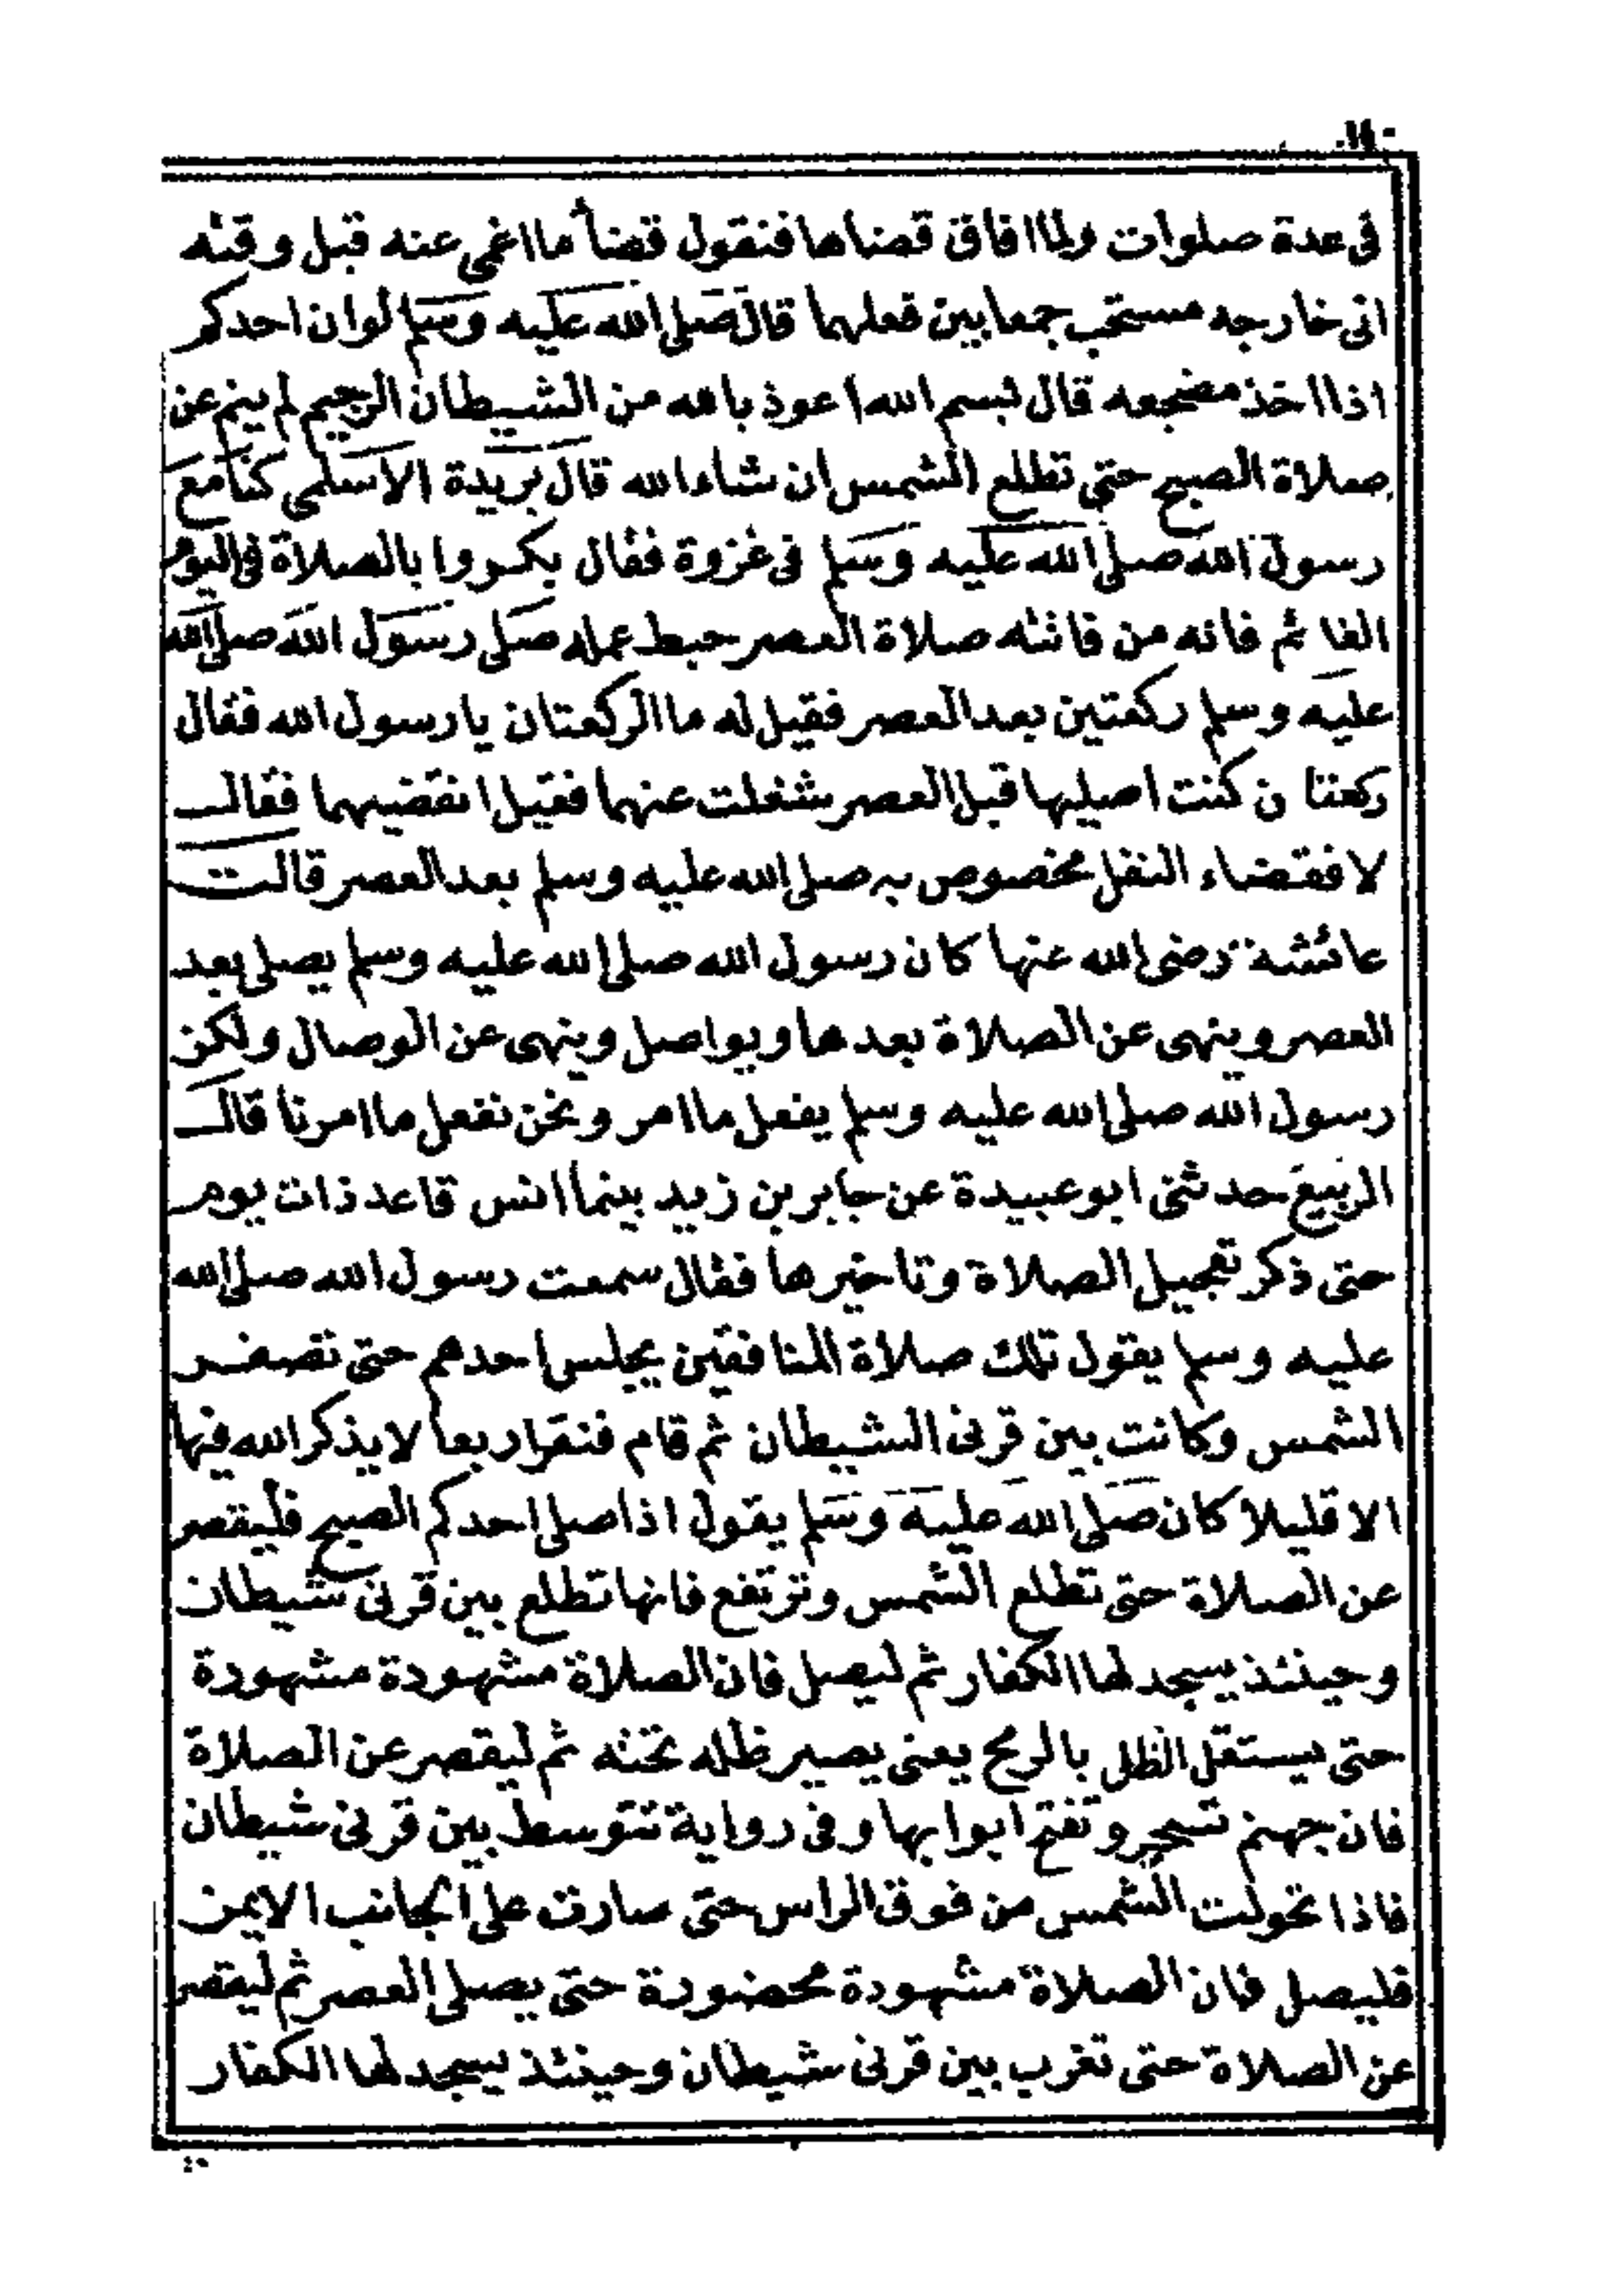 فى عدة صلوات ولما افاق قضاها فنقول قضأ ما اغمى عنه قبل وقته
اى خارجه مستحب جمعا بين فعلهما قال صلى الله عليه وسلم لو ان احدكم
اذا اخذ مضجعه قال لبسم الله اعوذ بالله من الشيطان الرجيم لم ينم عن
صلاة الصبح حتى تطلع الشمس ان شاء الله قال بريدة الاسلمى كنا مع
رسول الله صلى الله عليه وسلم فى غزوة فقال بكروا بالصلاة فى اليوم
الغائم فانه من فاتته صلاة العصر حبط عمله صلى رسول الله صلى الله
عليه وسلم ركعتين بعد العصر فقيل له ما الركعتان يا رسول الله فقال
ركعتان كنت اصليها قبل العصر شغلت عنهما فقيل انقضيهما فقال
لا فقضاء النفل مخصوص به صلى الله عليه وسلم بعد العصر قالت
عائشة رضى الله عنها كان رسول الله صلى الله عليه وسلم يصلى بعد
العصر وينهى عن الصلاة بعدها ويواصل وينهى عن الوصال ولكن
رسول الله صلى الله عليه وسلم يفعل ما امر ونحن نفعل ما امرنا قال
الربيع حدثنى ابو عبيدة عن جابر بن زيد بينما انس قاعد ذات يوم
حتى ذكر تعجيل الصلاة وتاخيرها فقال سمعت رسول الله صلى الله
عليه وسلم يقول تلك صلاة المنافقين يجلس احدهم حتى تصفر
الشمس وكانت بين قرنى الشيطان ثم قام فنقر اربعا لا يذكر الله فيها
الا قليلا كان صلى الله عليه وسلم يقول اذا صلى احدكم الصبح فليقصر
عن الصلاة حتى تطلع الشمس وترتفع فانها تطلع بين قرنى شيطان
وحينئذ يسجد لها الكفار ثم ليصل فان الصلاة مشهودة مشهودة
حتى يستقل الظل بالرمح يعنى يصير ظله تحته ثم ليقصر عن الصلاة
فان جهنم تسجر وتفتح ابوابها وفى رواية تتوسط بين قرنى شيطان
فاذا تحولت الشمس من فوق الراس حتى سارت على الجانب الايمن
فليصل فان الصلاة مشهودة محضودة حتى يصلى العصر ثم ليقصر
عن الصلاة حتى تغرب بين قرنى شيطان وحينئذ يسجد لها الكفار